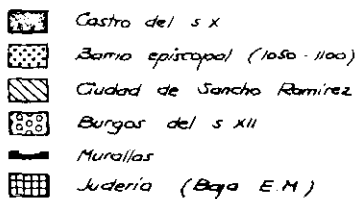 Castro del s X
Barrio episcopal (1050-1100)
Ciudad de Sancho Ramírez
Burgos del s XII
Murallas
Judería (Baja E.M)